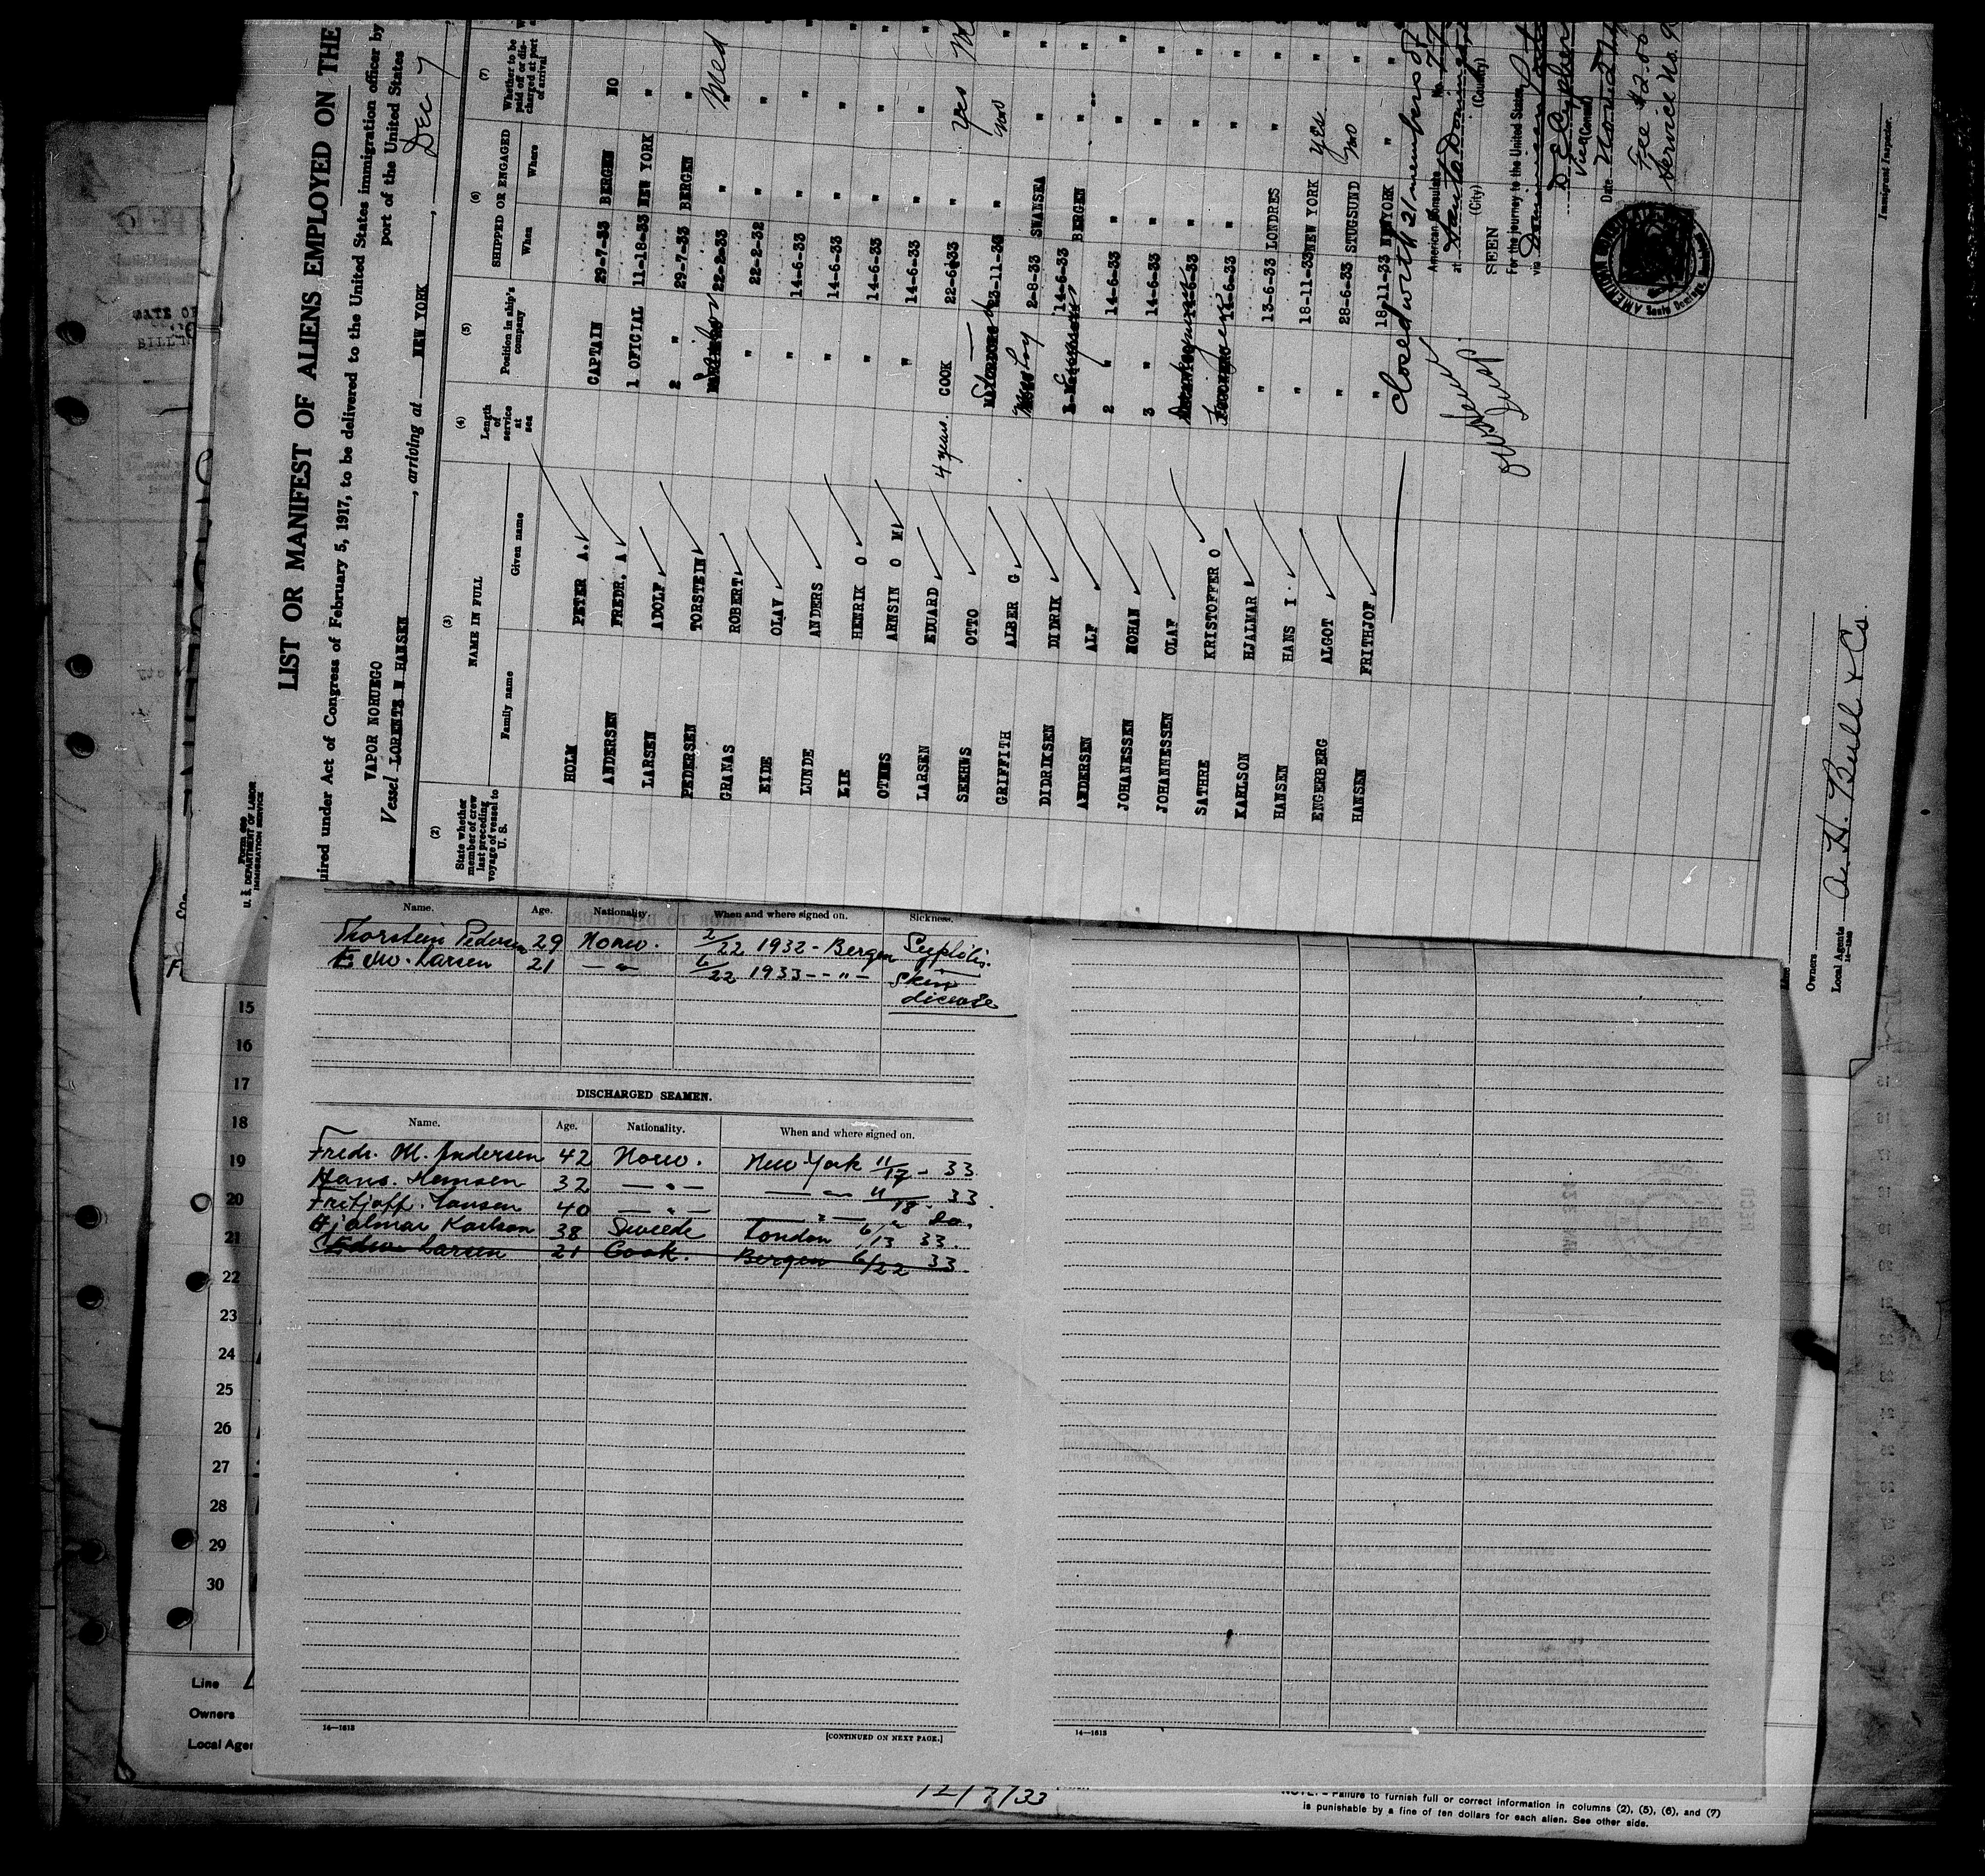 LIST OR MANIFEST OF ALIENS EMPLOYED ON THE
uired under Act of Congress of February 5, 1917, to be delivered to the United States immigration officer by
port of the United States
VAPOR NORUEGO
Vessel LORENTZ W HANSEN, arriving at NEW YORK, Dec 7
Form 689
U. S. DEPARTMENT OF LABOR
IMMIGRATION SERVICE
(2) (3) (4) (5) (6) (7)
State whether member of crew last preceding voyage of vessel to U. S.
NAME IN FULL
Family name Given name
Length of service at sea
Position in ship's company
SHIPPED OR ENGAGED
When Where
Whether to be paid off or discharged at port of arrival
HOLM PETER A. CAPTAIN 29-7-33 BERGEN NO
ANDERSEN FREDR. A 1 OFICIAL 11-18-33 NEW YORK "
LARSEN ADOLF 2 " 29-7-33 BERGEN "
PEDERSEN TORSTEIN 22-2-33 " Med
GRANAS ROBERT " 22-2-32 " "
EIDE OLAV " 14-6-33 " "
LUNDE ANDERS " 14-6-33 " "
LIE HENRIK O " 14-6-33 " "
OTNES ARNSIN O M " 14-6-33 " "
LARSEN EDUARD 4 years. COOK 22-6-33 " Yes
SEEHWS OTTO 23-11-30 " No
GRIFFITH ALBER G 2-8-33 SWANSEA "
DIDRIKSEN DIDRIK 14-6-33 BERGEN "
ANDERSEN ALF 2 " 14-6-33 " "
JOHANESSEN JOHAN 3 " 14-6-33 " "
JOHANNESSEN OLAF 14-6-33 " "
SATHRE KRISTOFFER O 14-6-33 " "
KARLSON HJALMAR " 13-6-33 LONDRES "
HANSEN HANS I " 18-11-33 NEW YORK Yes
ENGERBERG ALGOT " 28-6-33 STUGSUND No
HANSEN FRITHJOF " 18-11-33 NEWYORK "
Closed with 21 members of
American Consulate No. 77
at Santo Domingo
(City) (County)
SEEN
For the journey to the United States
via
Vice Consul
Date
Fee $2.00
Service No. 9
AMERICAN CONSULATE
Santo Domingo
Immigrant Inspector.
Line
Owners
Local Agents A. H. Bull & Co.
14-1240
Name. Age. Nationality. When and where signed on. Sickness.
Thorstein Pedersen 29 Norw. 2/22 1932 - Bergen Syphilis.
Edw. Larsen 21 — " — 6/22 1933 - - " - Skin
disease
DISCHARGED SEAMEN.
Name. Age. Nationality. When and where signed on.
Fredr. M. Andersen 42 Norw. New York 11/17 - 33
Hans. Hansen 32 — " — — " — 11/18 - 33
Fritjoff. Hansen 40 — " — — " — " do.
Hjalmar Karlson 38 Swede London 6/13 33.
Edw. Larsen 21 Cook. Bergen 6/22 33
14—1613
[CONTINUED ON NEXT PAGE.]
14—1613
15
16
17
18
19
20
21
22
23
24
25
26
27
28
29
30
Line
Owners
Local Agen
12/7/33
NOTE.—Failure to furnish full or correct information in columns (2), (5), (6), and (7)
is punishable by a fine of ten dollars for each alien. See other side.